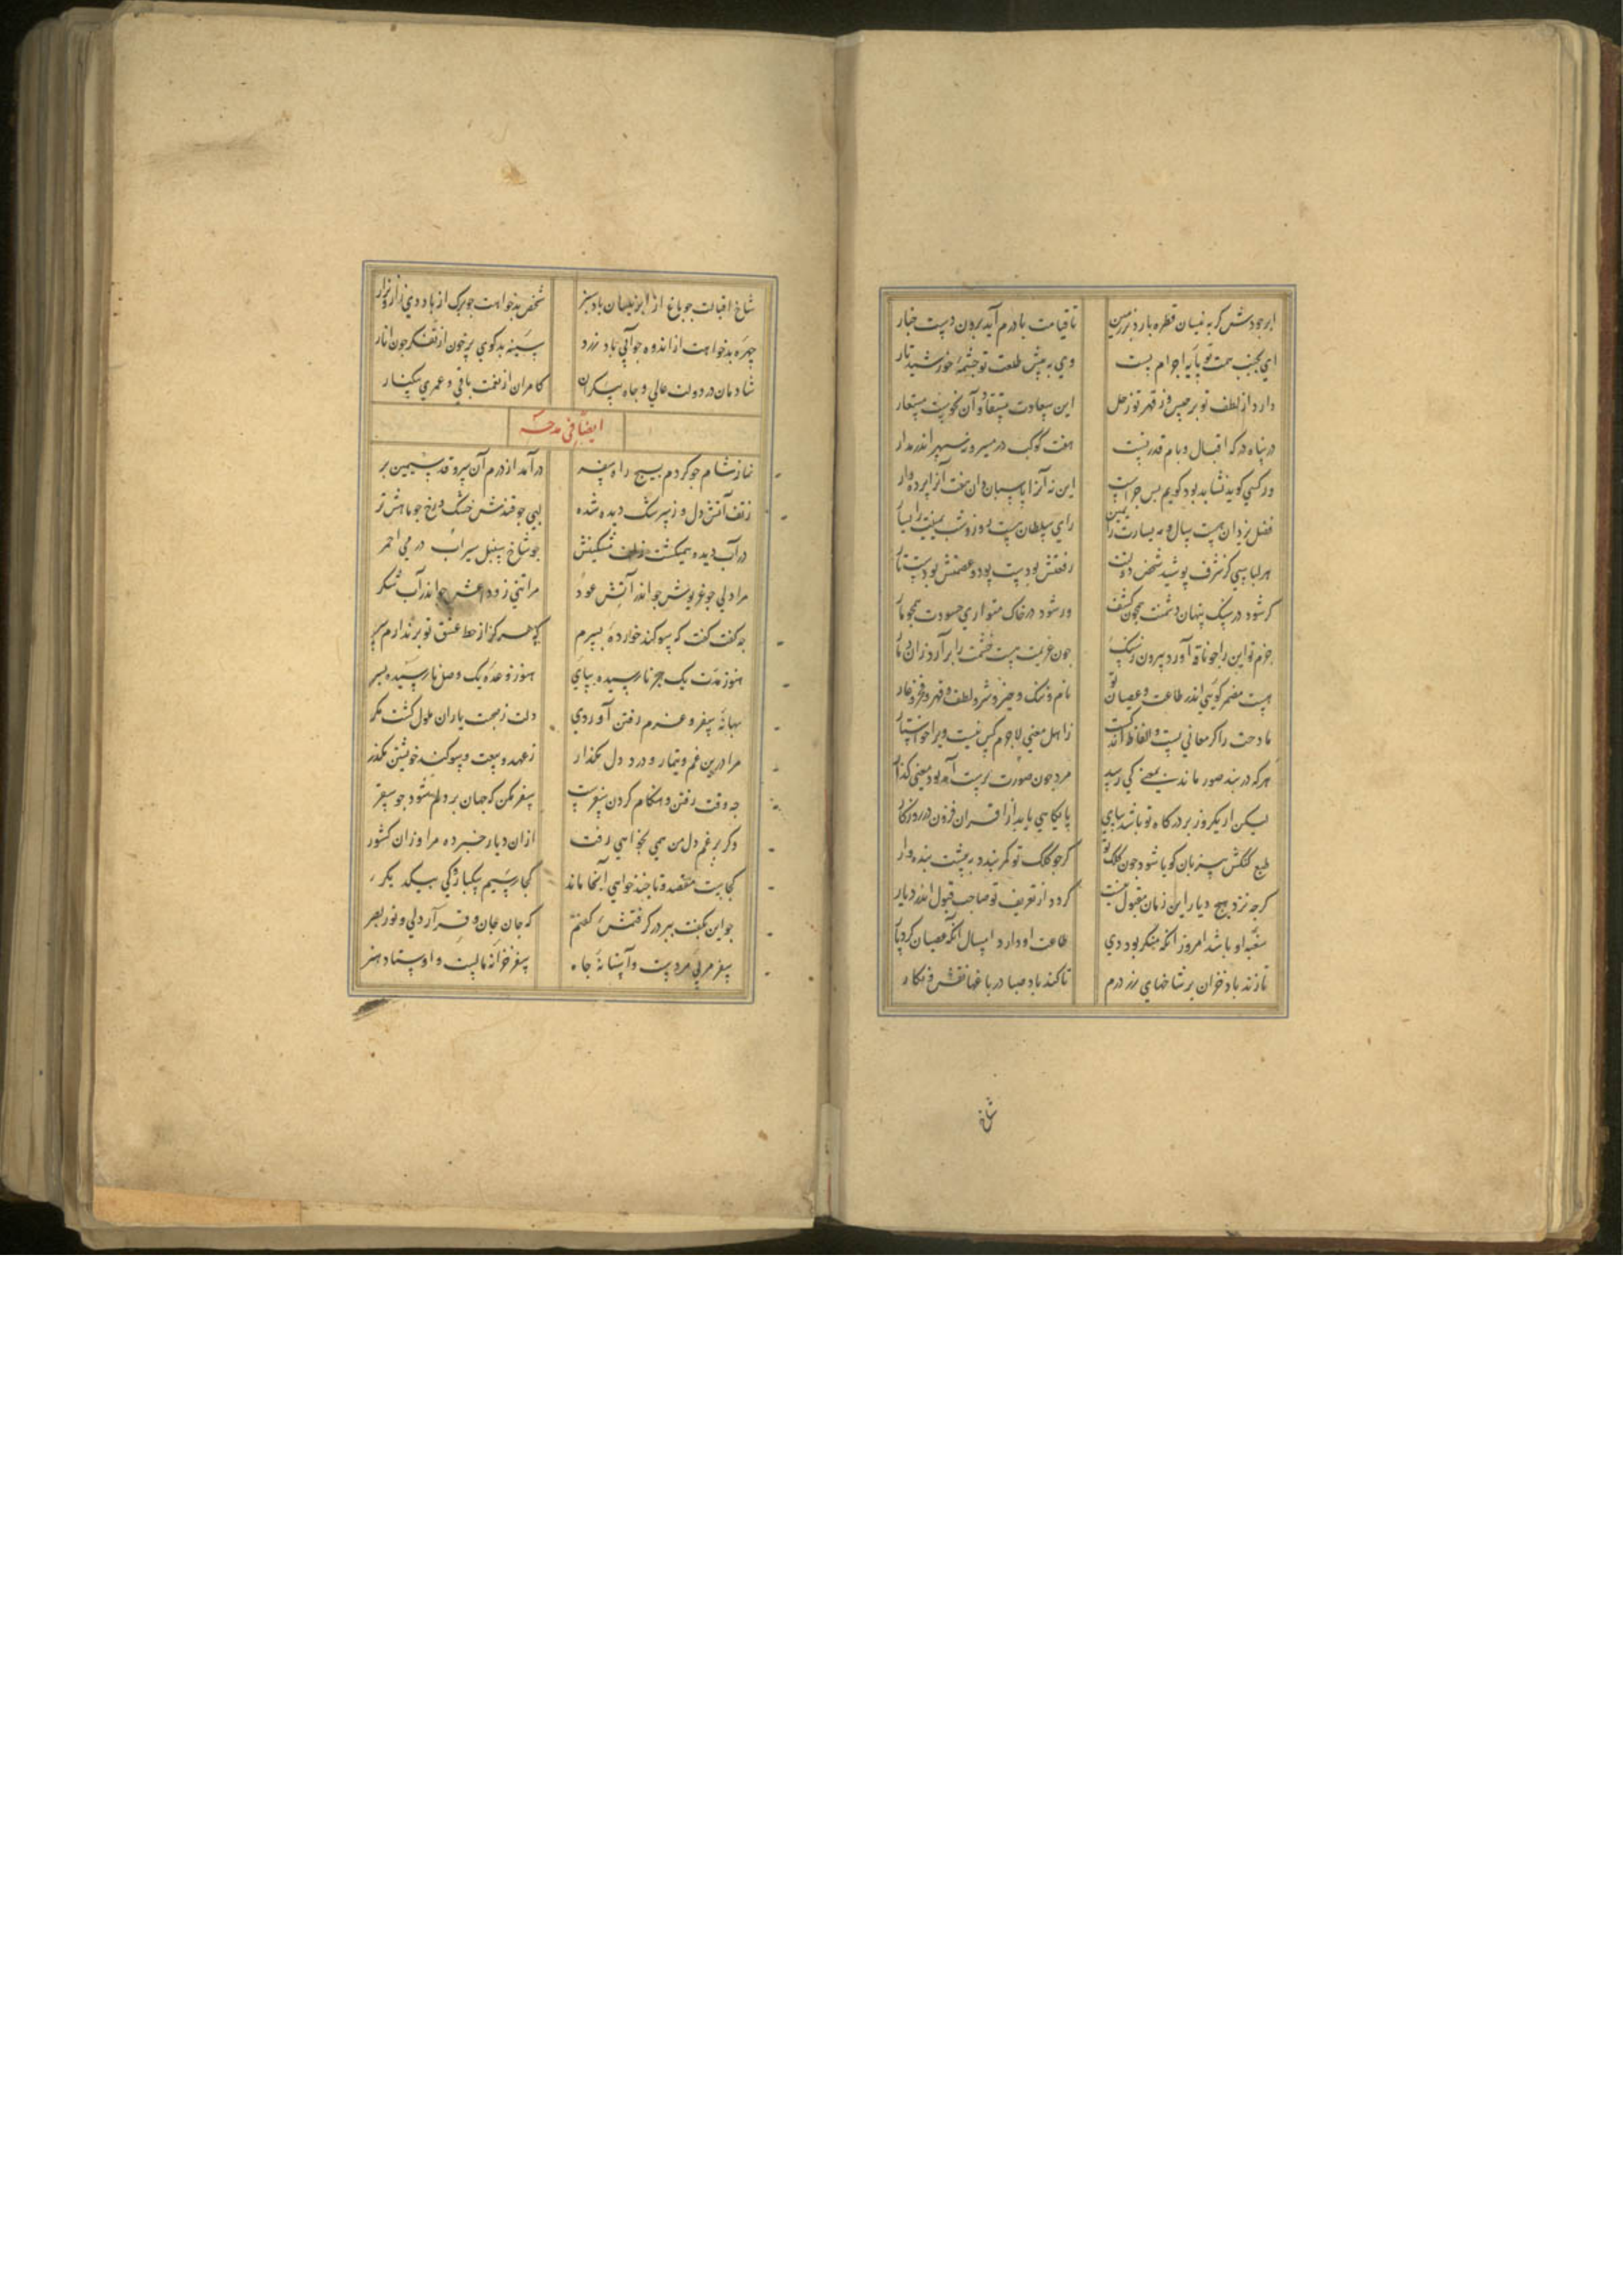 ابر جودش گر به نیسان قطره بارد بر زمین تا قیامت با درم آید برون دست چنار
ای بجنب همت تو پایه اجرام پست وی به پیش طلعت تو چشمه خورشید تار
دارد از لطف تو برجیس و ز قهر تو زحل این سعادت مستفاد و آن نحوست مستعار
در پناه درکه اقبال و بام قدر تست هفت کوکب در مسیر و نه سپهر اندر مدار
ور کسی کوید نشاید بود کویم بس چراست این نه آنرا پاسبان وان هفت آنرا پرده دار
فضل یزدان هست سال و مه یسارت را یمین رای سلطان هست روز و شب یمینت را یسار
هر لباسی کز شرف پوشید شخص دولت رفعتش بودست پود و عصمتش بودست تار
کر شود در سنک پنهان دشمنت همچون کشف ور شود در خاک متواری حسودت همچو مار
حزم تو این را جو ناقه آورد بیرون ز سنک چون عزیمت هست خشمت را برآرد زان دمار
هست مضمر کویئی اندر طاعت و عصیان تو نام و ننک و خیر و شر و لطف و قهر و فخر و عار
مادحت را کر معانی هست و الفاظ اندکست ز اهل معنی لاجرم کس نیست ویرا خواستار
هر که در بند صور ماند بمعنی کی رسد مرد چون صورت پرست آمد بود معنی کذار
لیکن ار یکروز بر درکاه تو باشد بپای پایکاهی یابد از اقران فزون در روزکار
طبع کنکش بیزبان کویا شود چون کلک تو کر جو کلک تو کمر بندد به پیشت بنده وار
کرجه نزد هیچ دیار این زمان مقبول نیست کردد از تعریف تو صاحب قبول اندر دیار
سغبه او باشد امروز انکه منکر بود دی طاعت او دارد امسال آنکه عصیان کرد پار
تا زند باد خزان بر شاخهای رز درم تا کند باد صبا در باغها نقش و نکار
شاخ
شاخ اقبالت جو باغ از ابر نیسان باد سبز شخص بدخواهت جو برک از باد دی زار و نزار
چهره بدخواهت از اندوه جو آبی باد زرد سینه بدکوی پر خون از تفکر جون انار
شادمان در دولت عالی و جاه بیکران کامران از نعمت باقی و عمری بیکنار
ایضا فی مدحه
نماز شام جو کردم بسیج راه سفر درآمد از درم آن سرو قد سیمین بر
ز تف آتش دل وز سرشک دیده شده لبی جو قند ش خشک و رخ جو ماهش تر
در آب دیده همیکشت زلف مشکینش جو شاخ سنبل سیراب در می احمر
مرا دلی جو غریویش جو اندر آتش عود مرا تنی ز وداعش جو اندر آب شکر
جه کفت کفت که سوکند خورده بسرم که هرکز از خط عشق تو بر ندارم سر
هنوز مدت یک هجر نارسیده بپای هنوز وعده یک وصل نارسیده بسر
بهانه سفر و عزم رفتن آوردی دلت ز صحبت یاران ملول کشت مکر
مرا درین غم و تیمار و درد دل مکذار ز عهد و بیعت و سوکند خویشتن مکذر
جه وقت رفتن و هنکام کردن سفرست سفر مکن که جهان بر دلم شود جو سقر
وکر بر غم دل من همی بخواهی رفت ازان دیار خبر ده مرا وزان کشور
کجاست مقصد و تا چند خواهی آنجا ماند کجا رسیم یکبارکی بیکدیکر
جو این بکفت ببر در کرفتمش کفتم که جان جان و قرار دلی و نور بصر
سفر مربی مردست و آستانه جاه سفر خزانه مالست و اوستاد هنر